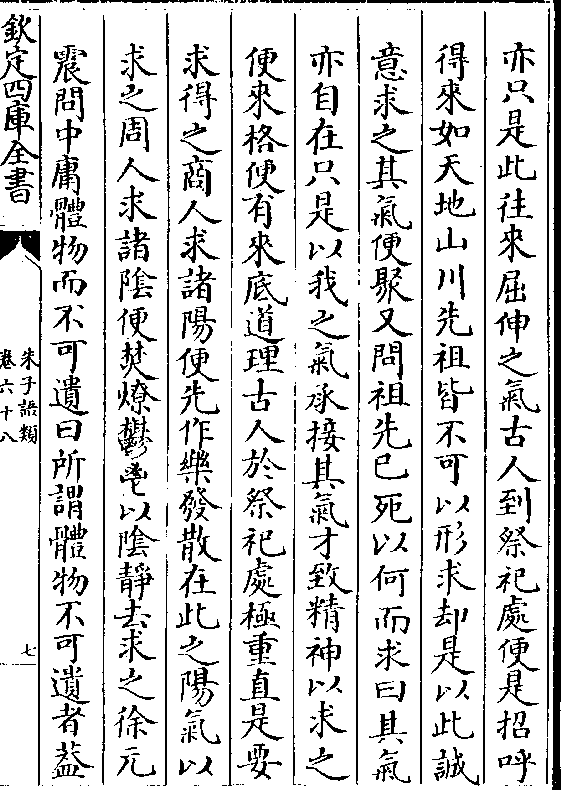 亦只是此往來屈伸之氣古人到祭祀處便是招呼
得來如天地山川先祖皆不可以形求却是以此誠
意求之其氣便聚又問祖先已死以何而求曰其氣
亦自在只是以我之氣承接其氣才致精神以求之
便來格便有來底道理古人於祭祀處極重直是要
求得之商人求諸陽便先作樂發散在此之陽氣以
求之周人求諸陰便焚燎鬱鬯以陰靜去求之徐元
震問中庸體物而不可遺曰所謂體物不可遺者葢
欽定四庫全書
朱子語類
卷六十八
七